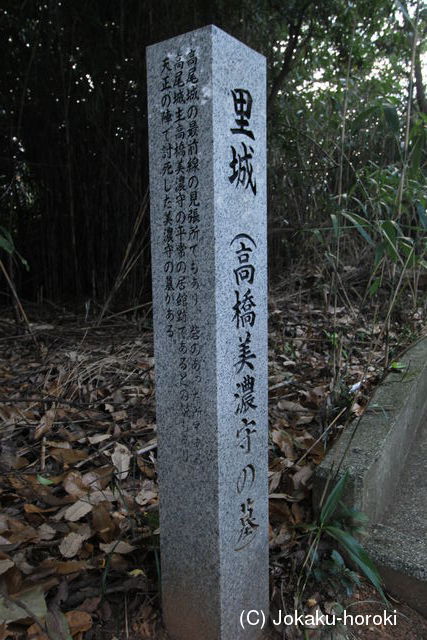 里城
(高橋美濃守の墓
高尾城の最前線の見張所でもあり、砦のあった
高尾城主高橋美濃守の平常の居館跡であるとの
天正の陣で討死した美濃守の墓がある。
(C) Jokaku-horoki